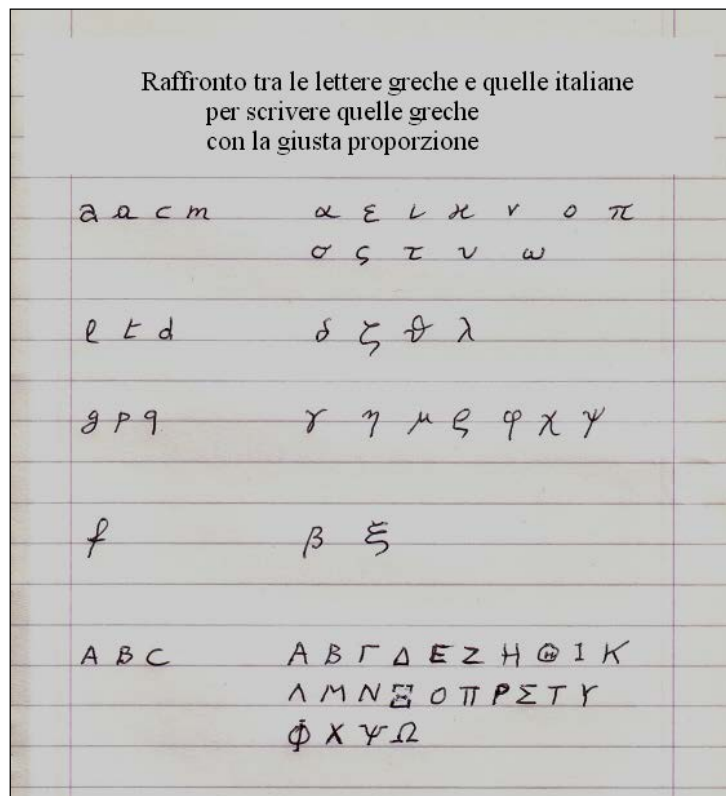 Raffronto tra le lettere greche e quelle italiane
per scrivere quelle greche
con la giusta proporzione
a a c m α ε ι ϰ ν ο π
σ ς τ υ ω
l t d δ ζ θ λ
g p q γ η μ ρ φ χ ψ
f β ξ
A B C Α Β Γ Δ Ε Ζ Η Θ Ι Κ
Λ Μ Ν Ξ Ο Π Ρ Σ Τ Υ
Φ Χ Ψ Ω